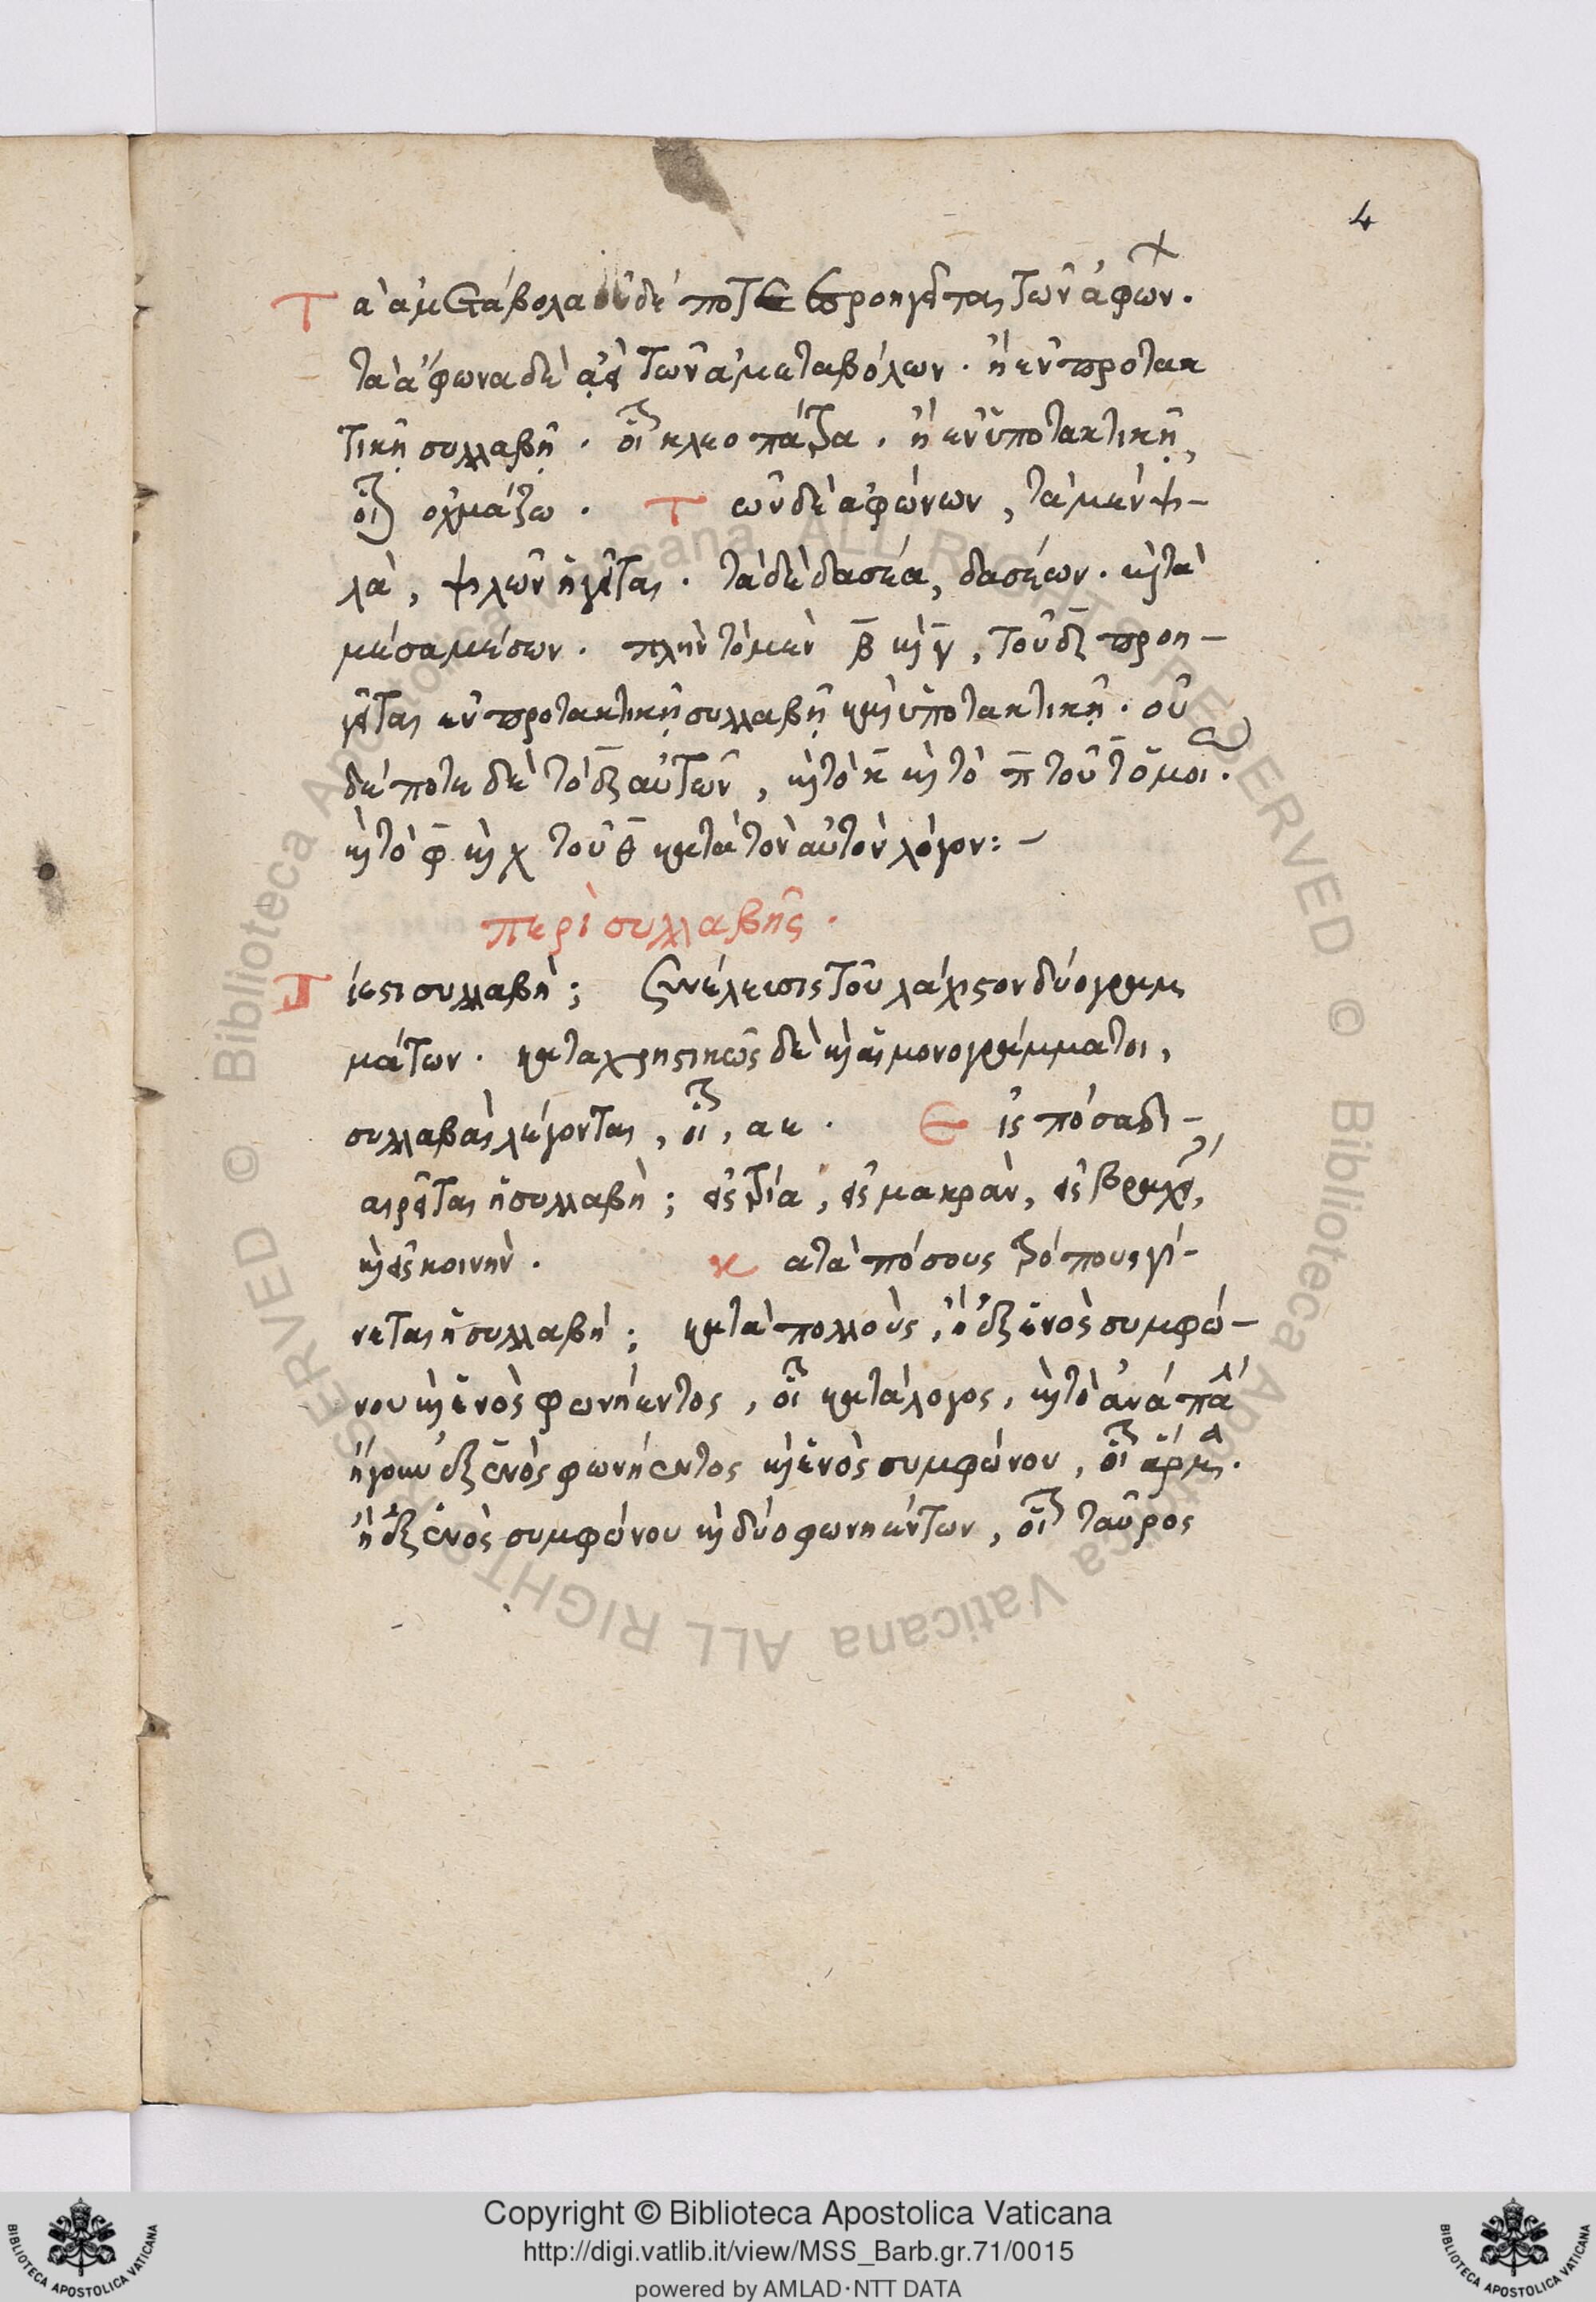 4
Τὰ ἀμετάβολα οὐδέποτε προηγεῖται τῶν ἀφών.
τὰ ἄφωνα δὲ ἀεὶ τῶν ἀμεταβόλων. ἢ ἐν προτακ
τικῇ συλλαβῇ. οἷον κλεοπάτρα. ἢ ἐν ὑποτακτικῇ,
οἷον ὀχμάζω. Τῶν δὲ ἀφώνων, τὰ μὲν ψι-
λὰ, ψιλῶν ἡγεῖται. τὰ δὲ δασέα, δασέων. καὶ τὰ
μέσα μέσων. πλὴν τὸ μὲν β καὶ γ, τοῦ δ προη-
γεῖται ἐν προτακτικῇ συλλαβῇ καὶ ὑποτακτικῇ. οὐ
δέποτε δὲ τὸ δ αὐτῶν, καὶ τὸ κ καὶ τὸ π τοῦ τ ὁμοί.
καὶ τὸ φ καὶ χ τοῦ θ κατὰ τὸν αὐτὸν λόγον:-
περὶ συλλαβῆς.
Τί ἐστι συλλαβὴ; Συνέλευσις τοὐλάχιστον δύο γραμ
μάτων. καταχρηστικῶς δὲ καὶ αἱ μονογράμματοι,
συλλαβαὶ λέγονται, οἷον, α ε. Εἰς πόσα δι-
αιρεῖται ἡ συλλαβὴ; εἰς τρία, εἰς μακρὰν, εἰς βραχεῖαν,
καὶ εἰς κοινὴν. Κατὰ πόσους τρόπους γί-
νεται ἡ συλλαβὴ; κατὰ πολλοὺς, ἢ ἐξ ἑνὸς συμφώ-
νου καὶ ἑνὸς φωνήεντος, οἷον κατάλογος, καὶ τὸ ἀνάπαλιν
ἤγουν ἐξ ἑνὸς φωνήεντος καὶ ἑνὸς συμφώνου, οἷον ἅρμα.
ἢ ἐξ ἑνὸς συμφώνου καὶ δύο φωνηέντων, οἷον ταῦρος
Copyright © Biblioteca Apostolica Vaticana
http://digi.vatlib.it/view/MSS_Barb.gr.71/0015
powered by AMLAD·NTT DATA